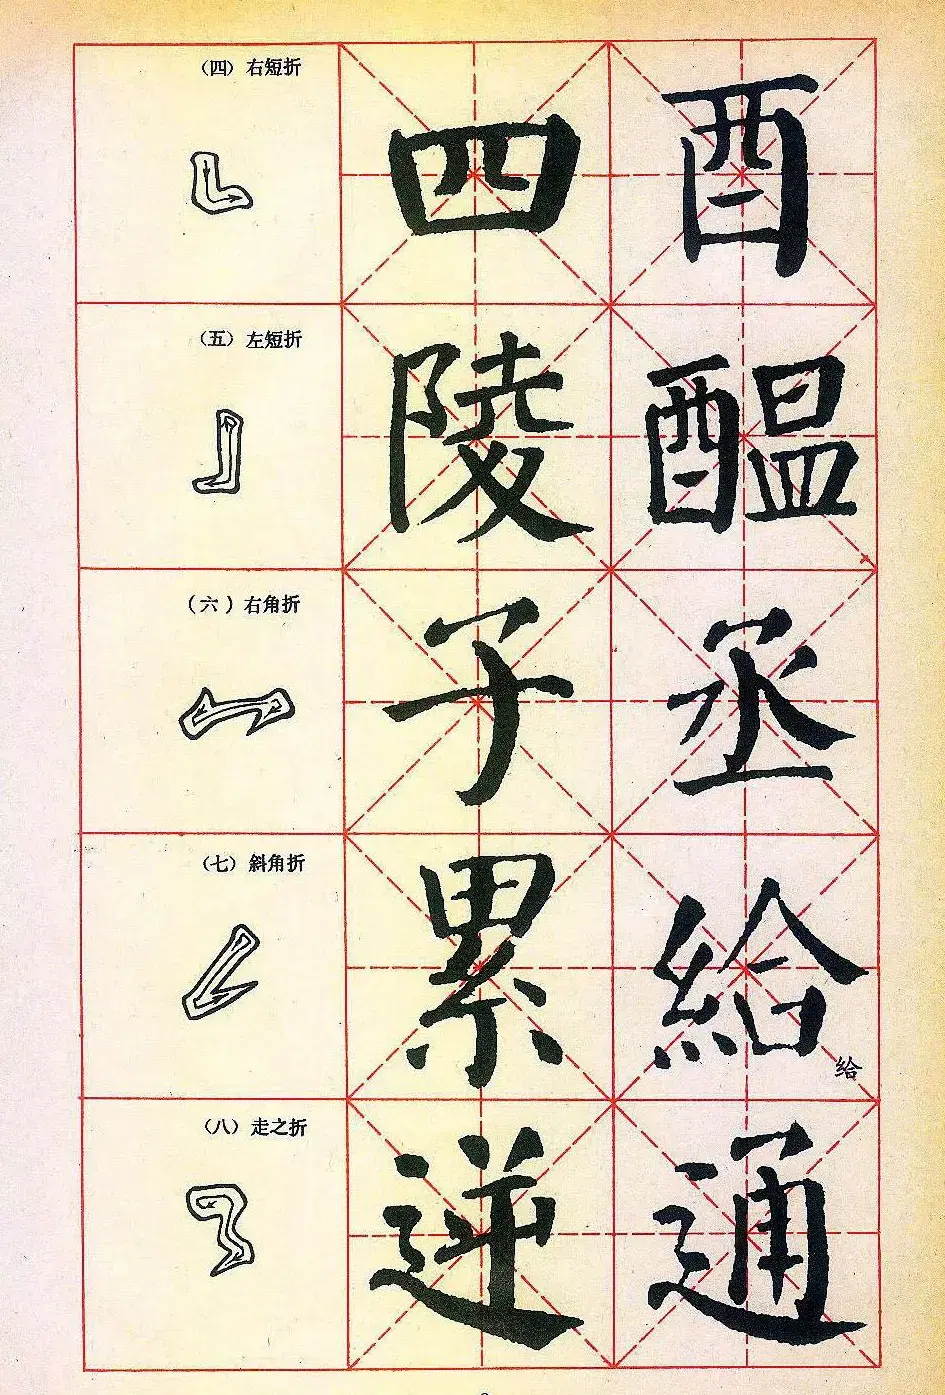 （四）右短折
四 酉
（五）左短折
陵 醖
（六）右角折
子 丞
（七）斜角折
累 給
给
（八）走之折
逆 通